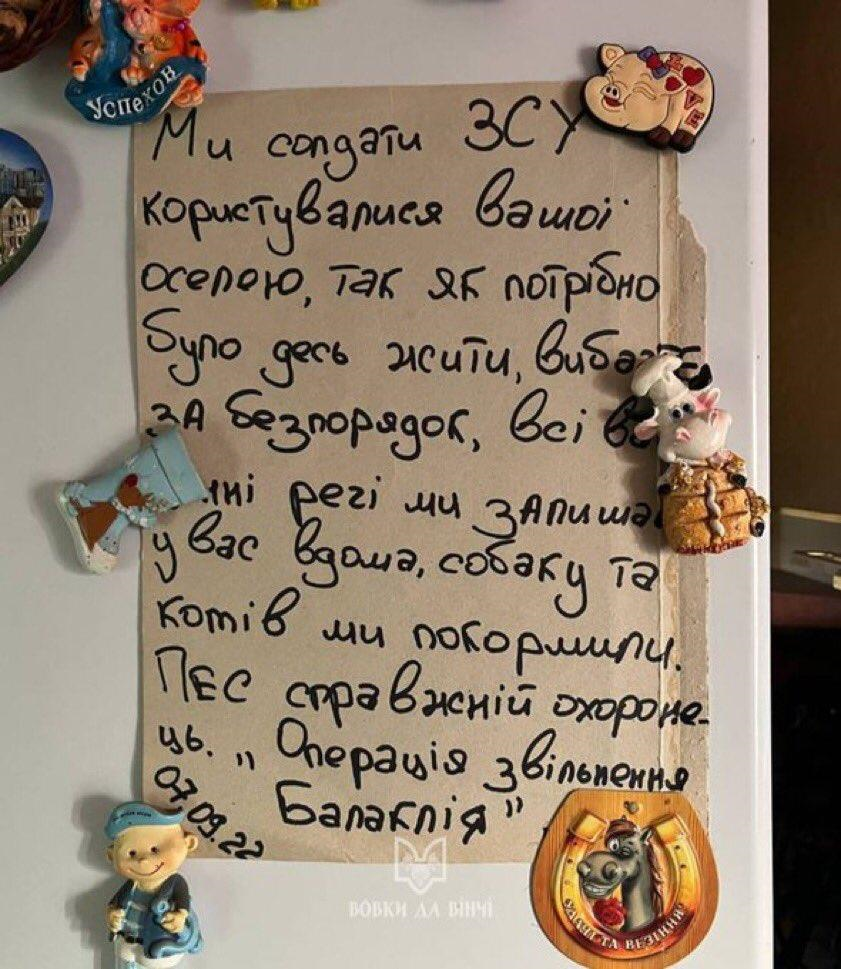 Успехов
LOVE
Ми солдати ЗСУ
користувалися вашої
оселею, так як потрібно
було десь жити,
за безпорядок, всі
речі ми
у вас вдома, собаку та
котів ми покормили.
Пес справжній охороне-
ць. „Операція звільнення
Балаклія”
07.09.22
ВОВКИ ДА ВІНЧІ
УДАЧІ ТА ВЕЗІННЯ